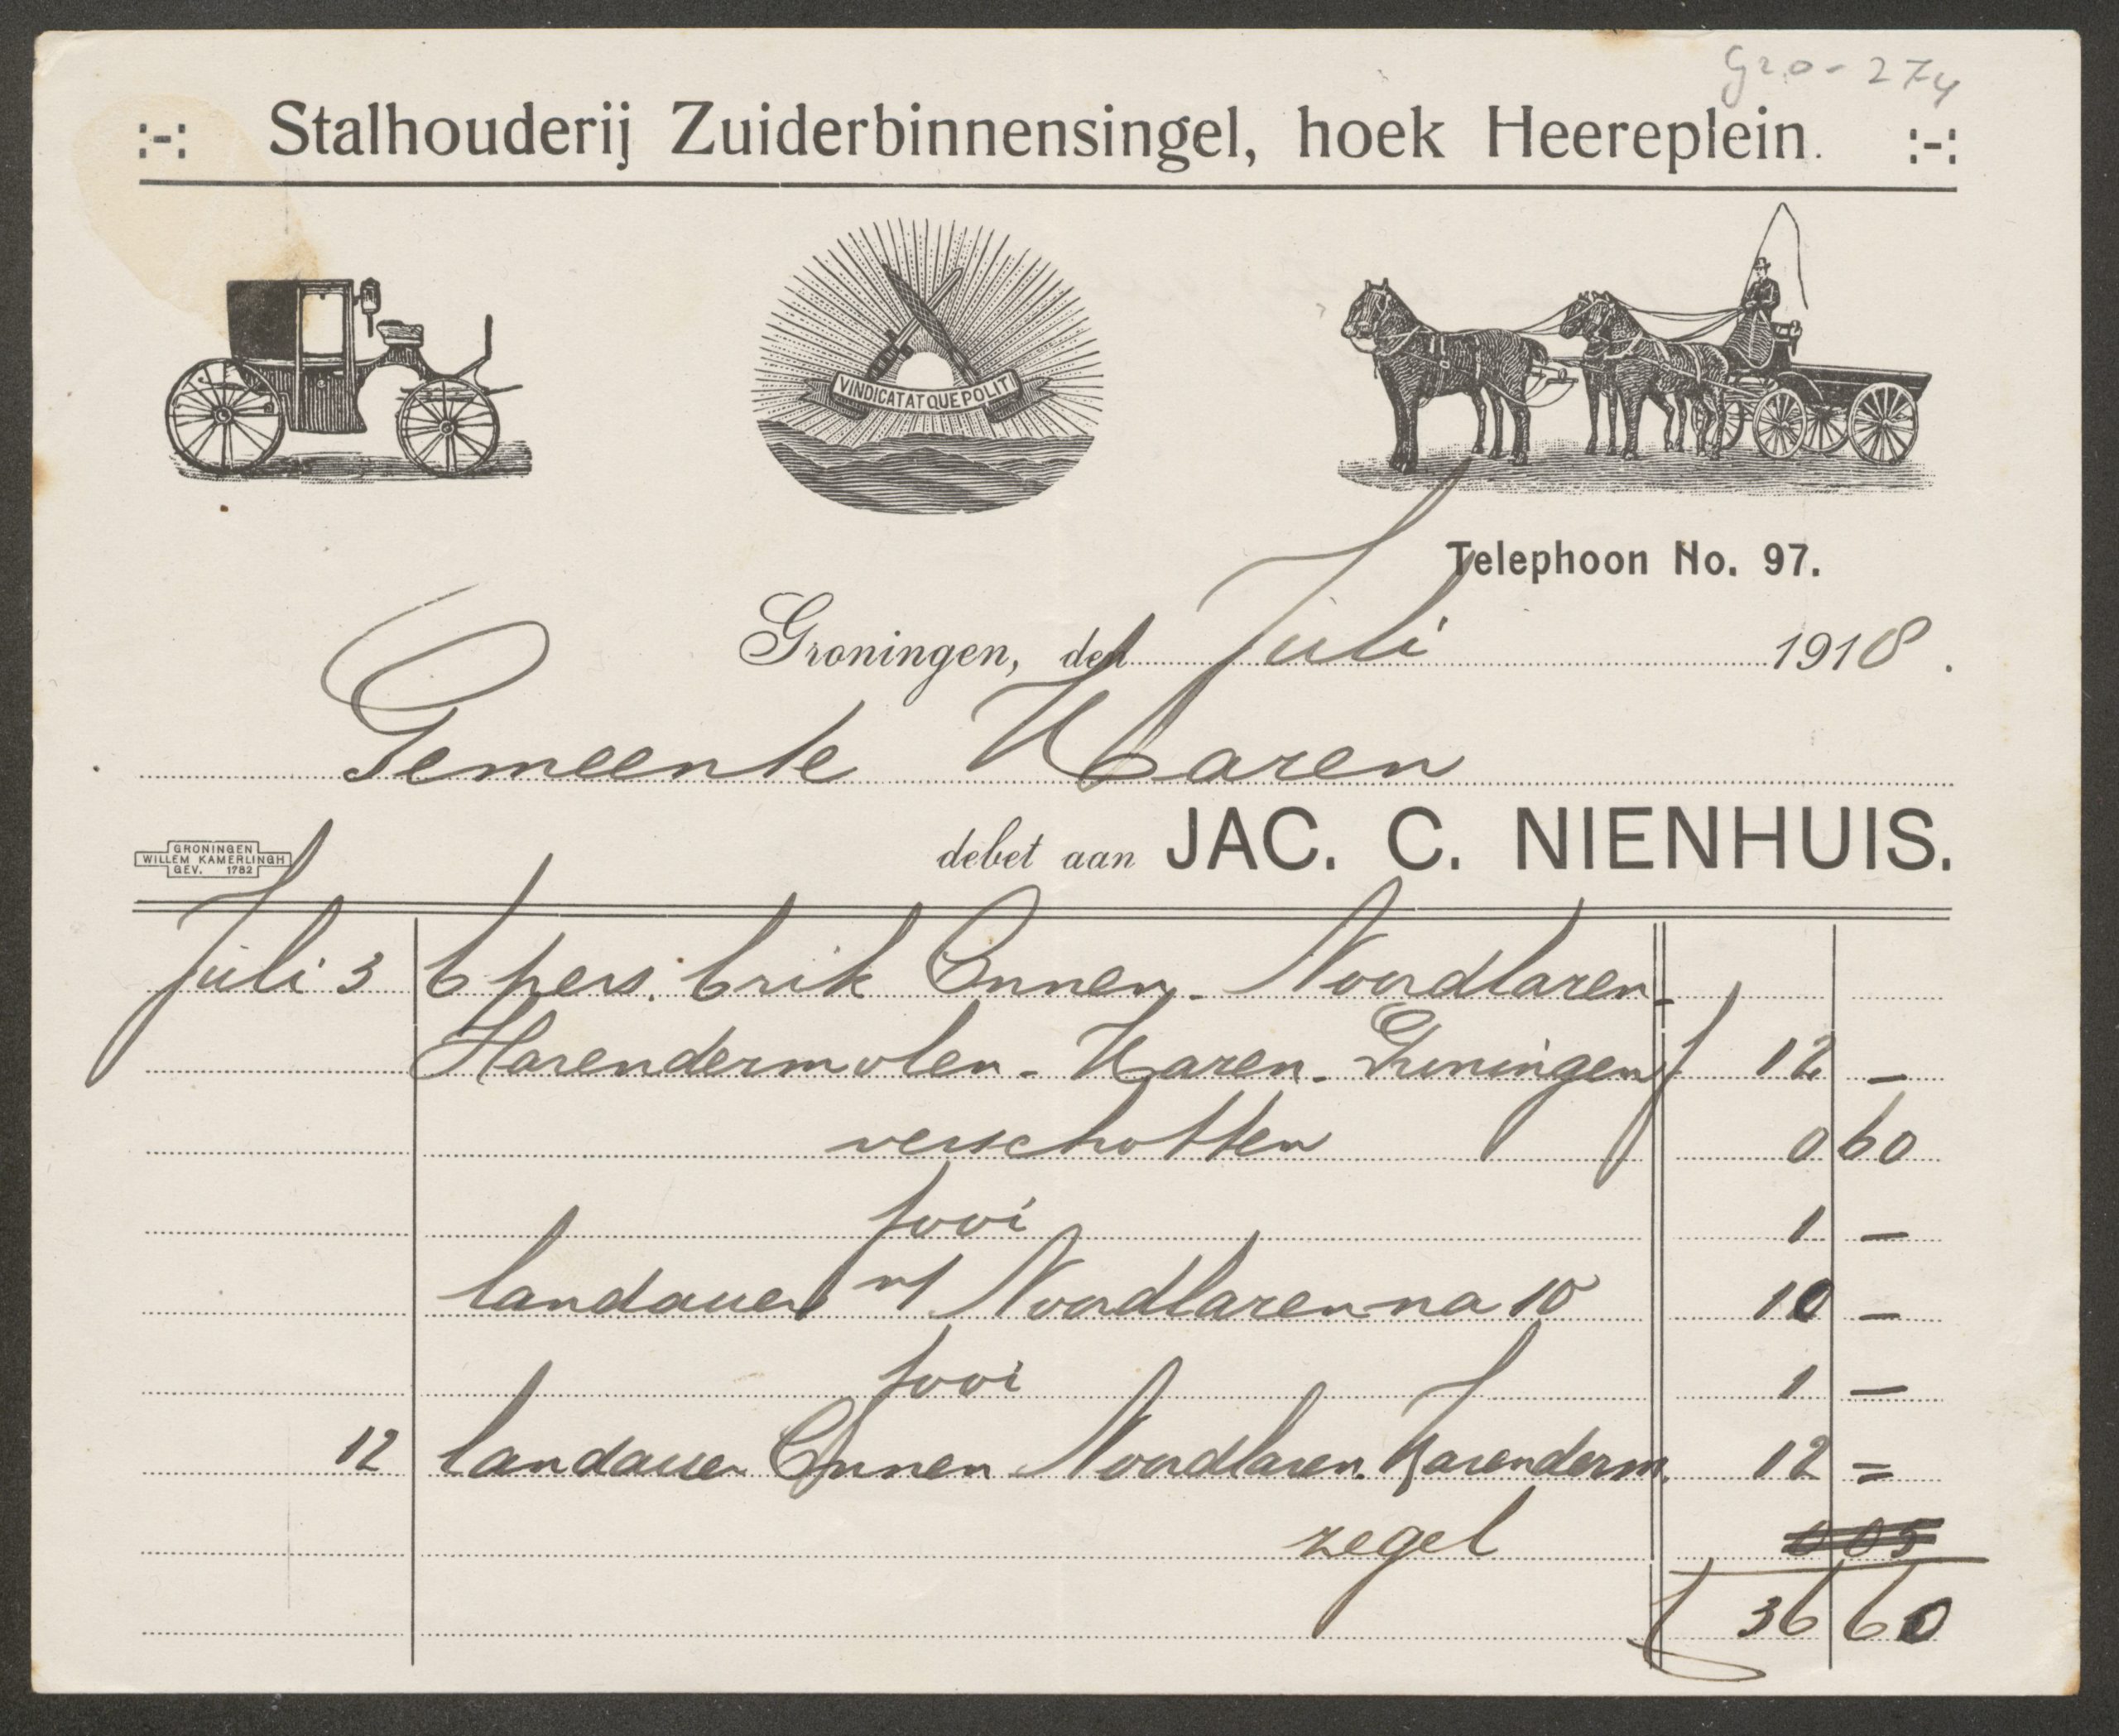 Gro-274
:-: Stalhouderij Zuiderbinnensingel, hoek Heereplein. :-:
VINDICATATQUEPOLITI
Telephoon No. 97.
Groningen, den Juli 1918.
Gemeente Haren
debet aan JAC. C. NIENHUIS.
GRONINGEN
WILLEM KAMERLINGH
GEV. 1782
Juli 3 6 pers. brik Onnen - Noordlaren -
Harendermolen - Haren - Groningen f 12 -
verschotten 0 60
fooi 1 -
landauer v/ Noordlaren na 10 10 -
fooi 1 -
12 landauer Onnen Noordlaren. Harenderm. 12 =
zegel 0 05
f 36 60